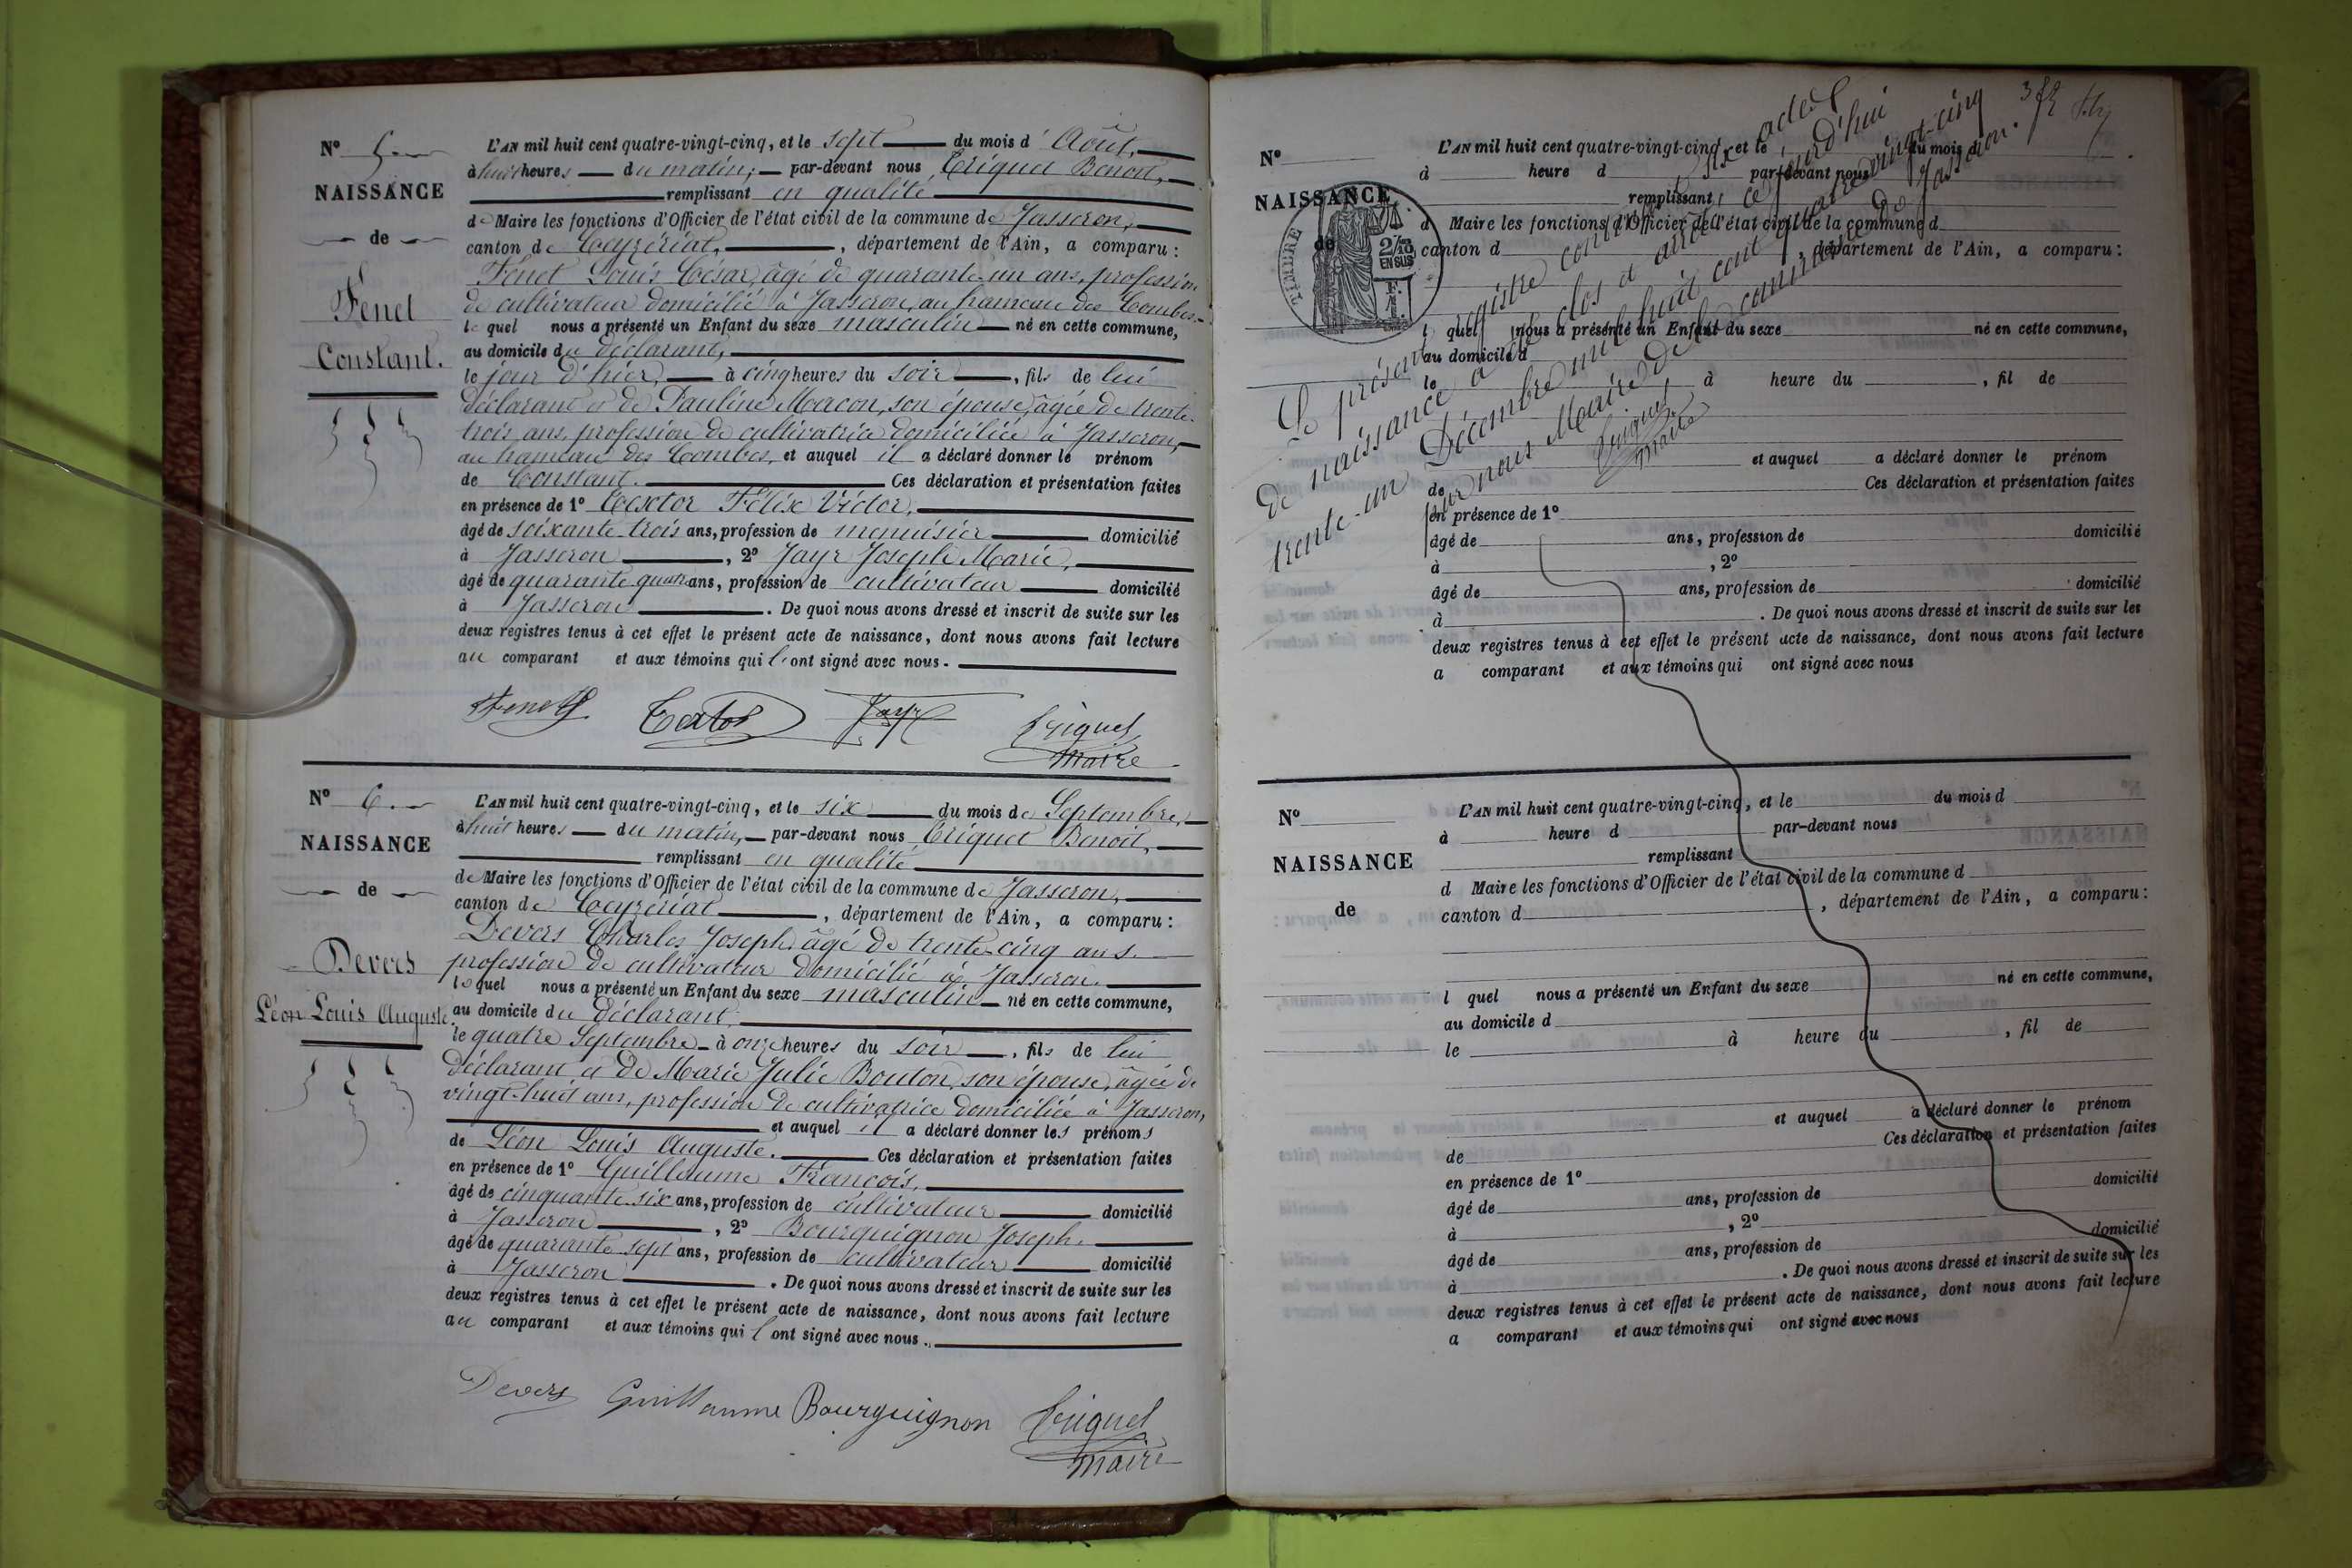 N° 5
NAISSANCE
de
Fenet
Constant.
L'AN mil huit cent quatre-vingt-cinq, et le sept du mois d'Août,
à huit heures du matin, par-devant nous, Triquet Benoit,
remplissant en qualité
de Maire les fonctions d'Officier de l'état civil de la commune de Jasseron,
canton de Ceyzériat, département de l'Ain, a comparu :
Fenet Louis César, âgé de quarante-un ans, profession
de cultivateur domicilié à Jasseron, au hameau des Combes
lequel nous a présenté un Enfant du sexe masculin né en cette commune,
au domicile du déclarant,
le jour d'hier, à cinq heures du soir, fils de lui
déclarant et de Pauline Macon, son épouse, âgée de trente-
trois ans, profession de cultivatrice domiciliée à Jasseron,
au hameau des Combes, et auquel il a déclaré donner le prénom
de Constant. Ces déclaration et présentation faites
en présence de 1° Textor Félix Victor,
âgé de soixante-trois ans, profession de menuisier domicilié
à Jasseron, 2° Jayr Joseph Marie,
âgé de quarante-quatre ans, profession de cultivateur domicilié
à Jasseron. De quoi nous avons dressé et inscrit de suite sur les
deux registres tenus à cet effet le présent acte de naissance, dont nous avons fait lecture
au comparant et aux témoins qui l'ont signé avec nous.
Fenet Textor Jayr Triquet
Maire
N° 6.
NAISSANCE
de
Devers
Léon Louis Auguste
L'AN mil huit cent quatre-vingt-cinq, et le six du mois de Septembre,
à huit heures du matin, par-devant nous, Triquet Benoit,
remplissant en qualité
de Maire les fonctions d'Officier de l'état civil de la commune de Jasseron,
canton de Ceyzériat, département de l'Ain, a comparu :
Devers Charles Joseph, âgé de trente-cinq ans,
profession de cultivateur domicilié à Jasseron.
lequel nous a présenté un Enfant du sexe masculin né en cette commune,
au domicile du déclarant,
le quatre Septembre à onze heures du soir, fils de lui
déclarant et de Marie Julie Bouton, son épouse, âgée de
vingt-huit ans, profession de cultivatrice domiciliée à Jasseron,
et auquel il a déclaré donner les prénoms
de Léon Louis Auguste. Ces déclaration et présentation faites
en présence de 1° Guillaume François,
âgé de cinquante-six ans, profession de cultivateur domicilié
à Jasseron, 2° Bourguignon Joseph,
âgé de quarante-sept ans, profession de cultivateur domicilié
à Jasseron. De quoi nous avons dressé et inscrit de suite sur les
deux registres tenus à cet effet le présent acte de naissance, dont nous avons fait lecture
au comparant et aux témoins qui l'ont signé avec nous.
Devers Guillaume Bourguignon Triquet
Maire
N°
NAISSANCE
de
TIMBRE
2/10
EN SUS
L'AN mil huit cent quatre-vingt-cinq, et le du mois d
à heure d par-devant nous
remplissant
d Maire les fonctions d'Officier de l'état civil de la commune d
canton d , département de l'Ain, a comparu :
l quel nous a présenté un Enfant du sexe né en cette commune,
au domicile d
le à heure du , fil de
et auquel a déclaré donner le prénom
de Ces déclaration et présentation faites
en présence de 1°
âgé de ans, profession de domicilié
à , 2°
âgé de ans, profession de domicilié
à . De quoi nous avons dressé et inscrit de suite sur les
deux registres tenus à cet effet le présent acte de naissance, dont nous avons fait lecture
a comparant et aux témoins qui ont signé avec nous
Le présent registre contenant six actes
de naissance a été clos et arrêté ce jourd'hui
trente-un Décembre mil huit cent quatre vingt-cinq
par nous Maire de la commune de Jasseron.
Triquet
Maire
N°
NAISSANCE
de
L'AN mil huit cent quatre-vingt-cinq, et le du mois d
à heure d par-devant nous
remplissant
d Maire les fonctions d'Officier de l'état civil de la commune d
canton d , département de l'Ain, a comparu :
l quel nous a présenté un Enfant du sexe né en cette commune,
au domicile d
le à heure du , fil de
et auquel a déclaré donner le prénom
de Ces déclaration et présentation faites
en présence de 1°
âgé de ans, profession de domicilié
à , 2°
âgé de ans, profession de domicilié
à . De quoi nous avons dressé et inscrit de suite sur les
deux registres tenus à cet effet le présent acte de naissance, dont nous avons fait lecture
a comparant et aux témoins qui ont signé avec nous